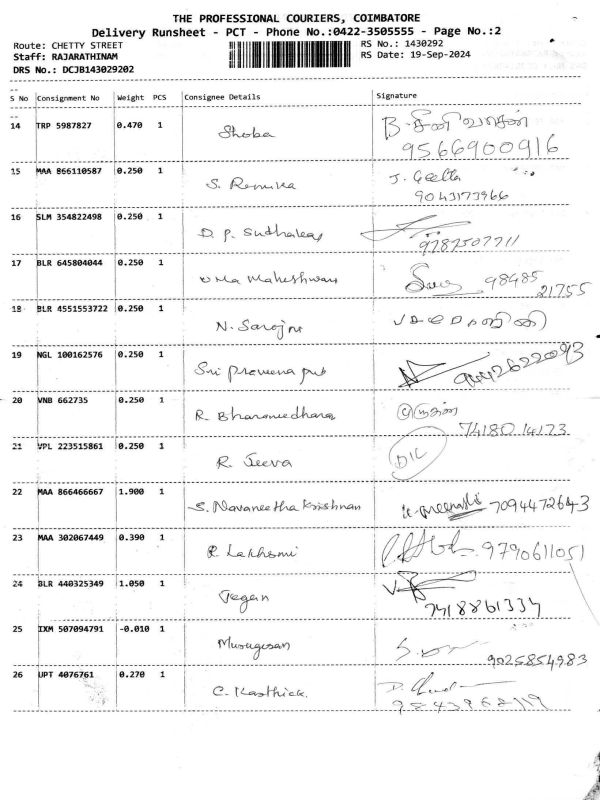 THE PROFESSIONAL COURIERS, COIMBATORE
Delivery Runsheet - PCT - Phone No.:0422-3505555 - Page No.:2
Route: CHETTY STREET RS No.: 1430292
Staff: RAJARATHINAM RS Date: 19-Sep-2024
DRS No.: DCJB143029202
S No Consignment No Weight PCS Consignee Details Signature
14 TRP 5987827 0.470 1 Shoba B. சீனிவாசன்
9566900916
15 MAA 866110587 0.250 1 S. Remika J. Geetha
9043173966
16 SLM 354822498 0.250 1 D. P. Sudhakar
9787507711
17 BLR 645804044 0.250 1 Uma Maheshwari 98485
21755
18 BLR 4551553722 0.250 1 N. Saroja
19 NGL 100162576 0.250 1 Sri Praveena 9442622093
20 VNB 662735 0.250 1 R.
74180 14173
21 VPL 223515861 0.250 1 R. Jeeva DIL
22 MAA 866466667 1.900 1 S. Navaneetha Krishnan 7094472643
23 MAA 302067449 0.390 1 R. Lakhsmi 9790611051
24 BLR 440325349 1.050 1 Jegan
7418861334
25 IXM 507094791 -0.010 1 Murugesan
9025854983
26 UPT 4076761 0.270 1 C. Karthick.